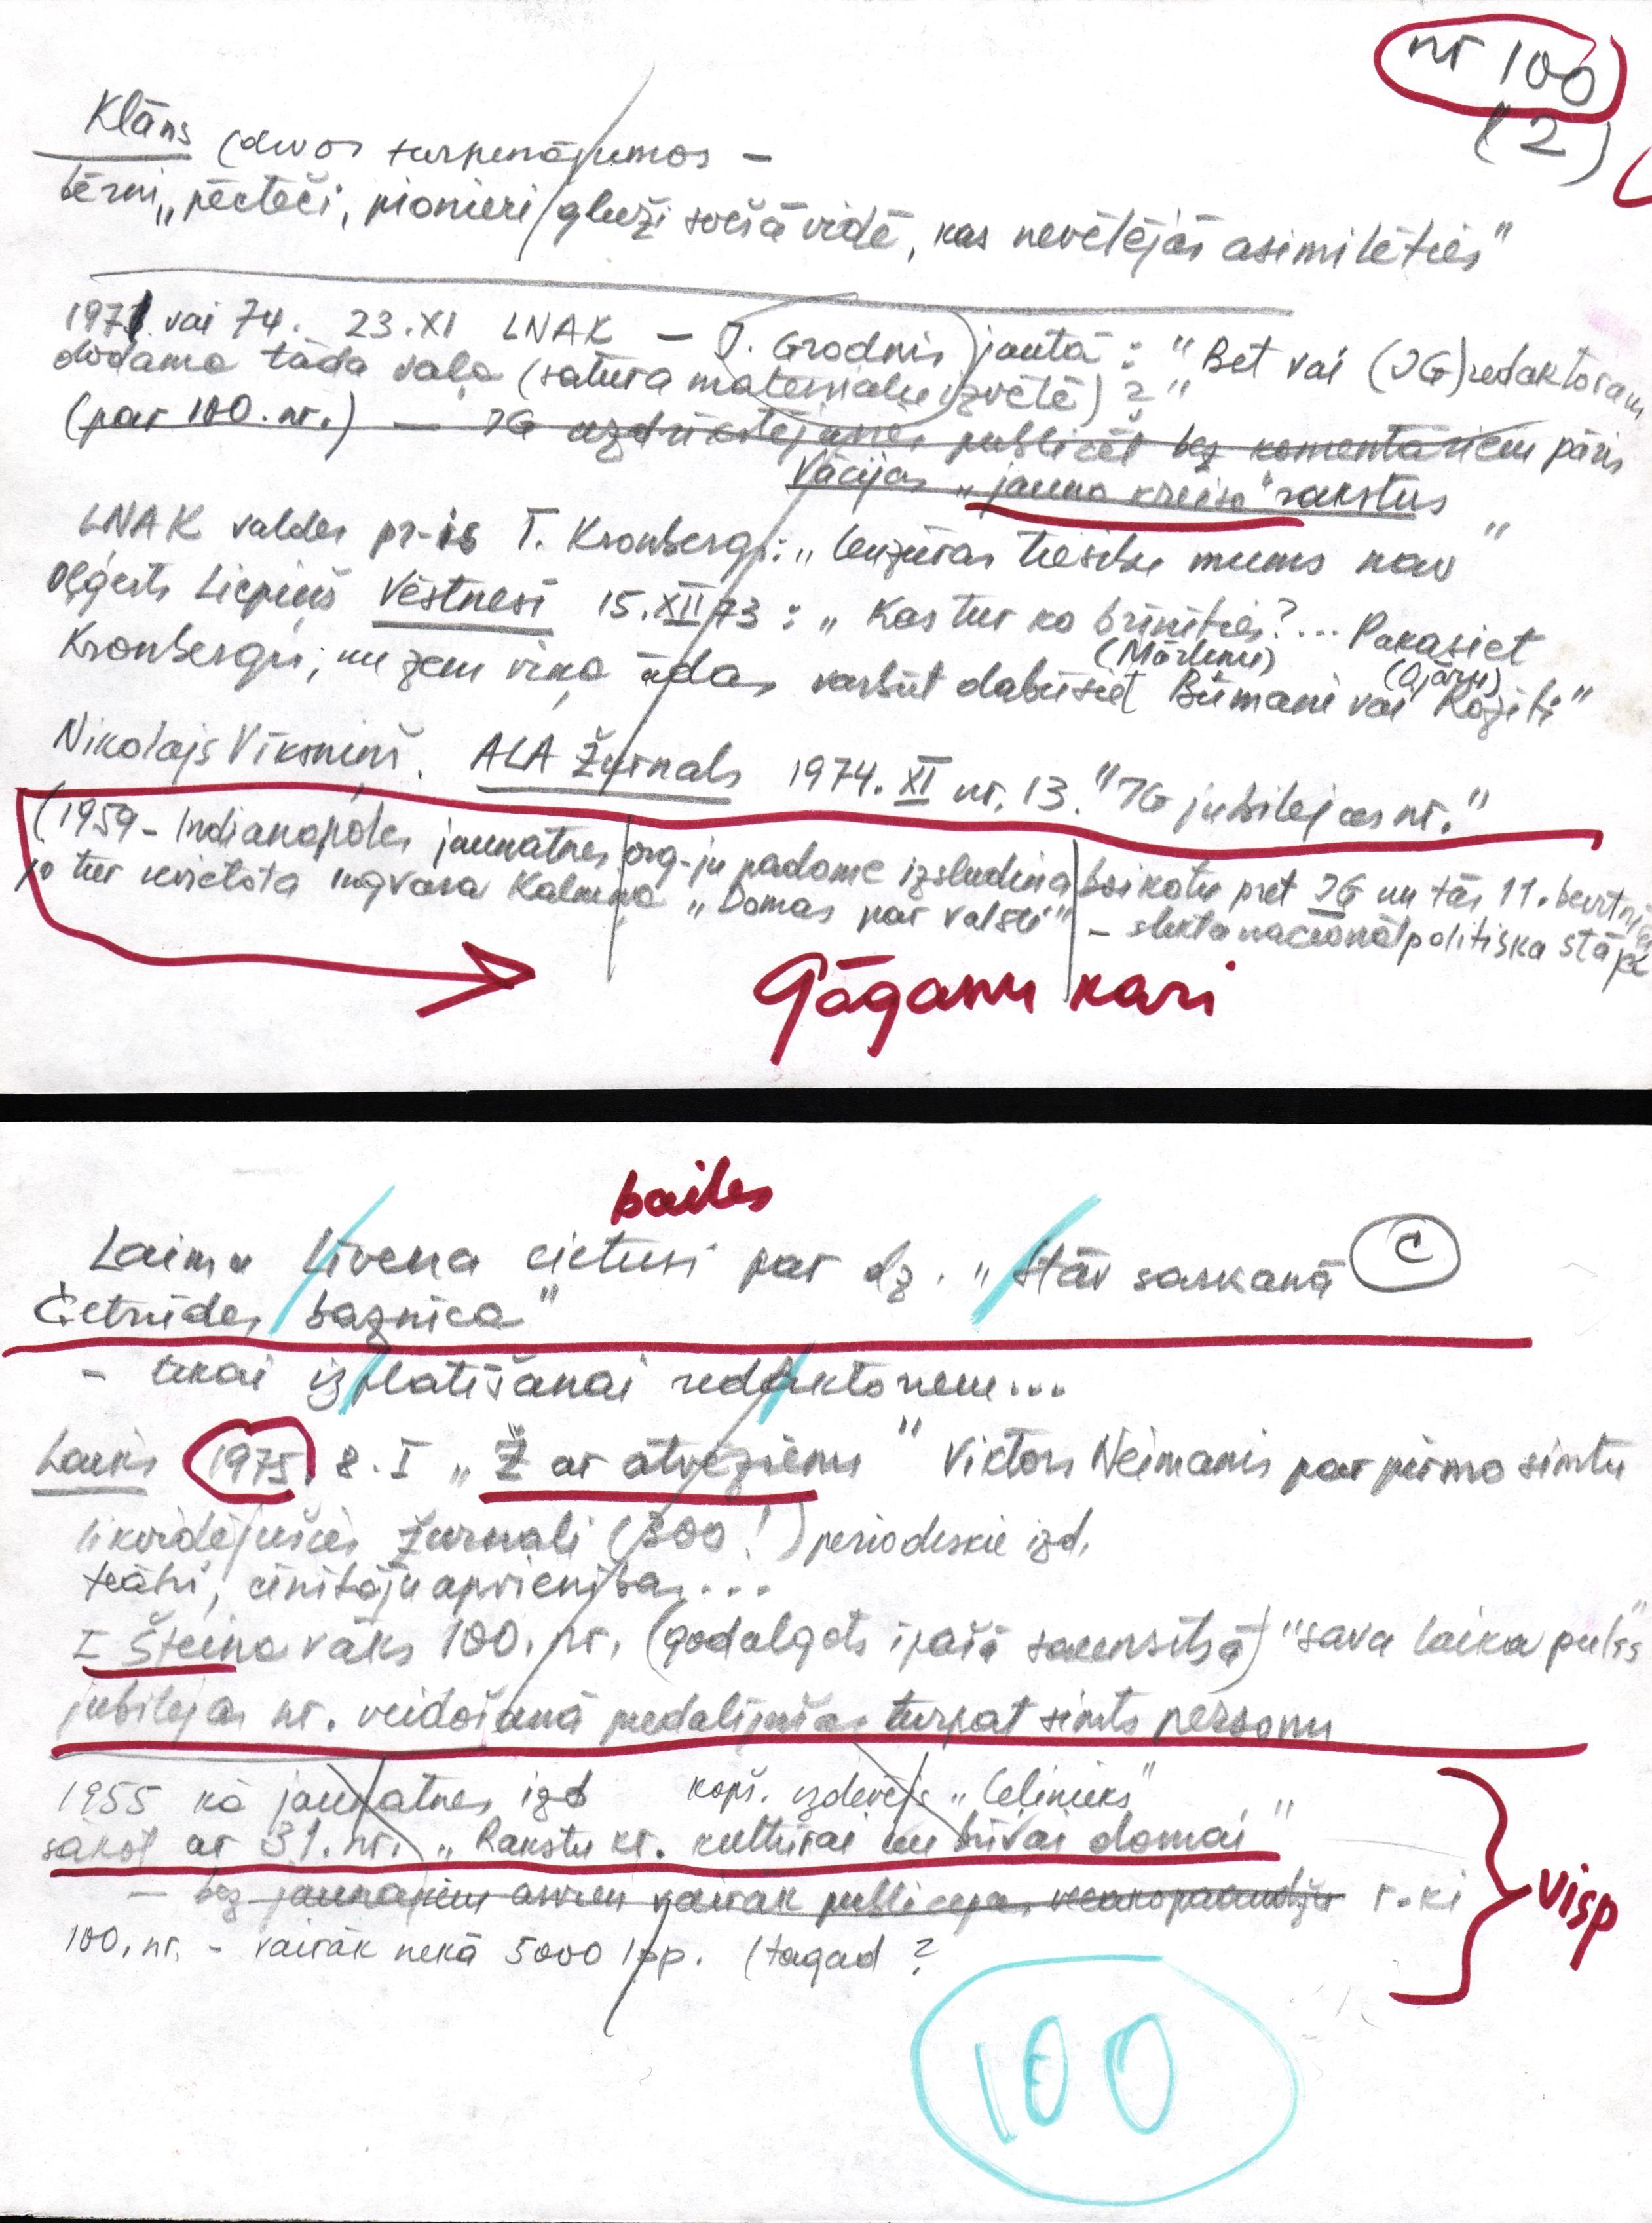 nr 100
(2)
Klāns (divos turpinājumos –
bērni, „pēcteči, pionieri gluži svešā vidē, kas nevēlējās asimilēties”
1971 vai 74. 23.XI LNAK – J. Grodnis jautā: “Bet vai (JG) redaktoram
dodama tāda vaļa (satura materiālu izvēlē)?”
(par 100. nr.) — JG uzdrīkstējusies publicēt bez komentāriem pāris
Vācijas „jauno kreiso” rakstus
LNAK valdes pr-is T. Kronbergs: „Cenzūras tiesību mums nav”
Oļģerts Liepiņš Vēstnesī 15.XII 73: „Kas tur ko brīnīties?... Pakasiet
Kronbergu; un zem viņa ādas varbūt dabūsiet (Mārtiņu) Būmani vai (Ojāru) Rozīti”
Nikolajs Vīksniņš. ALA Žurnāls 1974. XI nr. 13. “JG jubilejas nr.”
(1959 – Indianapoles jaunatnes org-ju padome izsludina boikotu pret JG un tās 11. burtn
jo tur ievietota Ingvara Kalniņa „Domas par valsti” – slikta nacionālpolitiska stāja
Gāganu kari
bailes
Laimu Līvena cietusi par dz. „Stāv saskaņā C
Ģertrūdes baznīca”
– tikai izplatīšanai redaktoriem...
Laiks 1975. 8. I „Ž ar atvēzienu” Viktors Neimanis par pirmo simtu
likvidējušies žurnāli (300!) periodiskie izd.
teātri, cīnītāju apvienības...
I Šteina vāks 100. nr. (godalgots īpašā sacensībā) “sava laika pulss”
jubilejas nr. veidošanā piedalījušās turpat simts personu
1955 kā jaunatnes izd kopš. izdevējs „Ceļinieks”
sākot ar 31. nr. „Rakstu kr. kultūrai un brīvai domai”
– bez jaunajiem arvien vairāk publicējas r-ki
100. nr. – vairāk nekā 5000 lpp. (tagad ?
visp
100